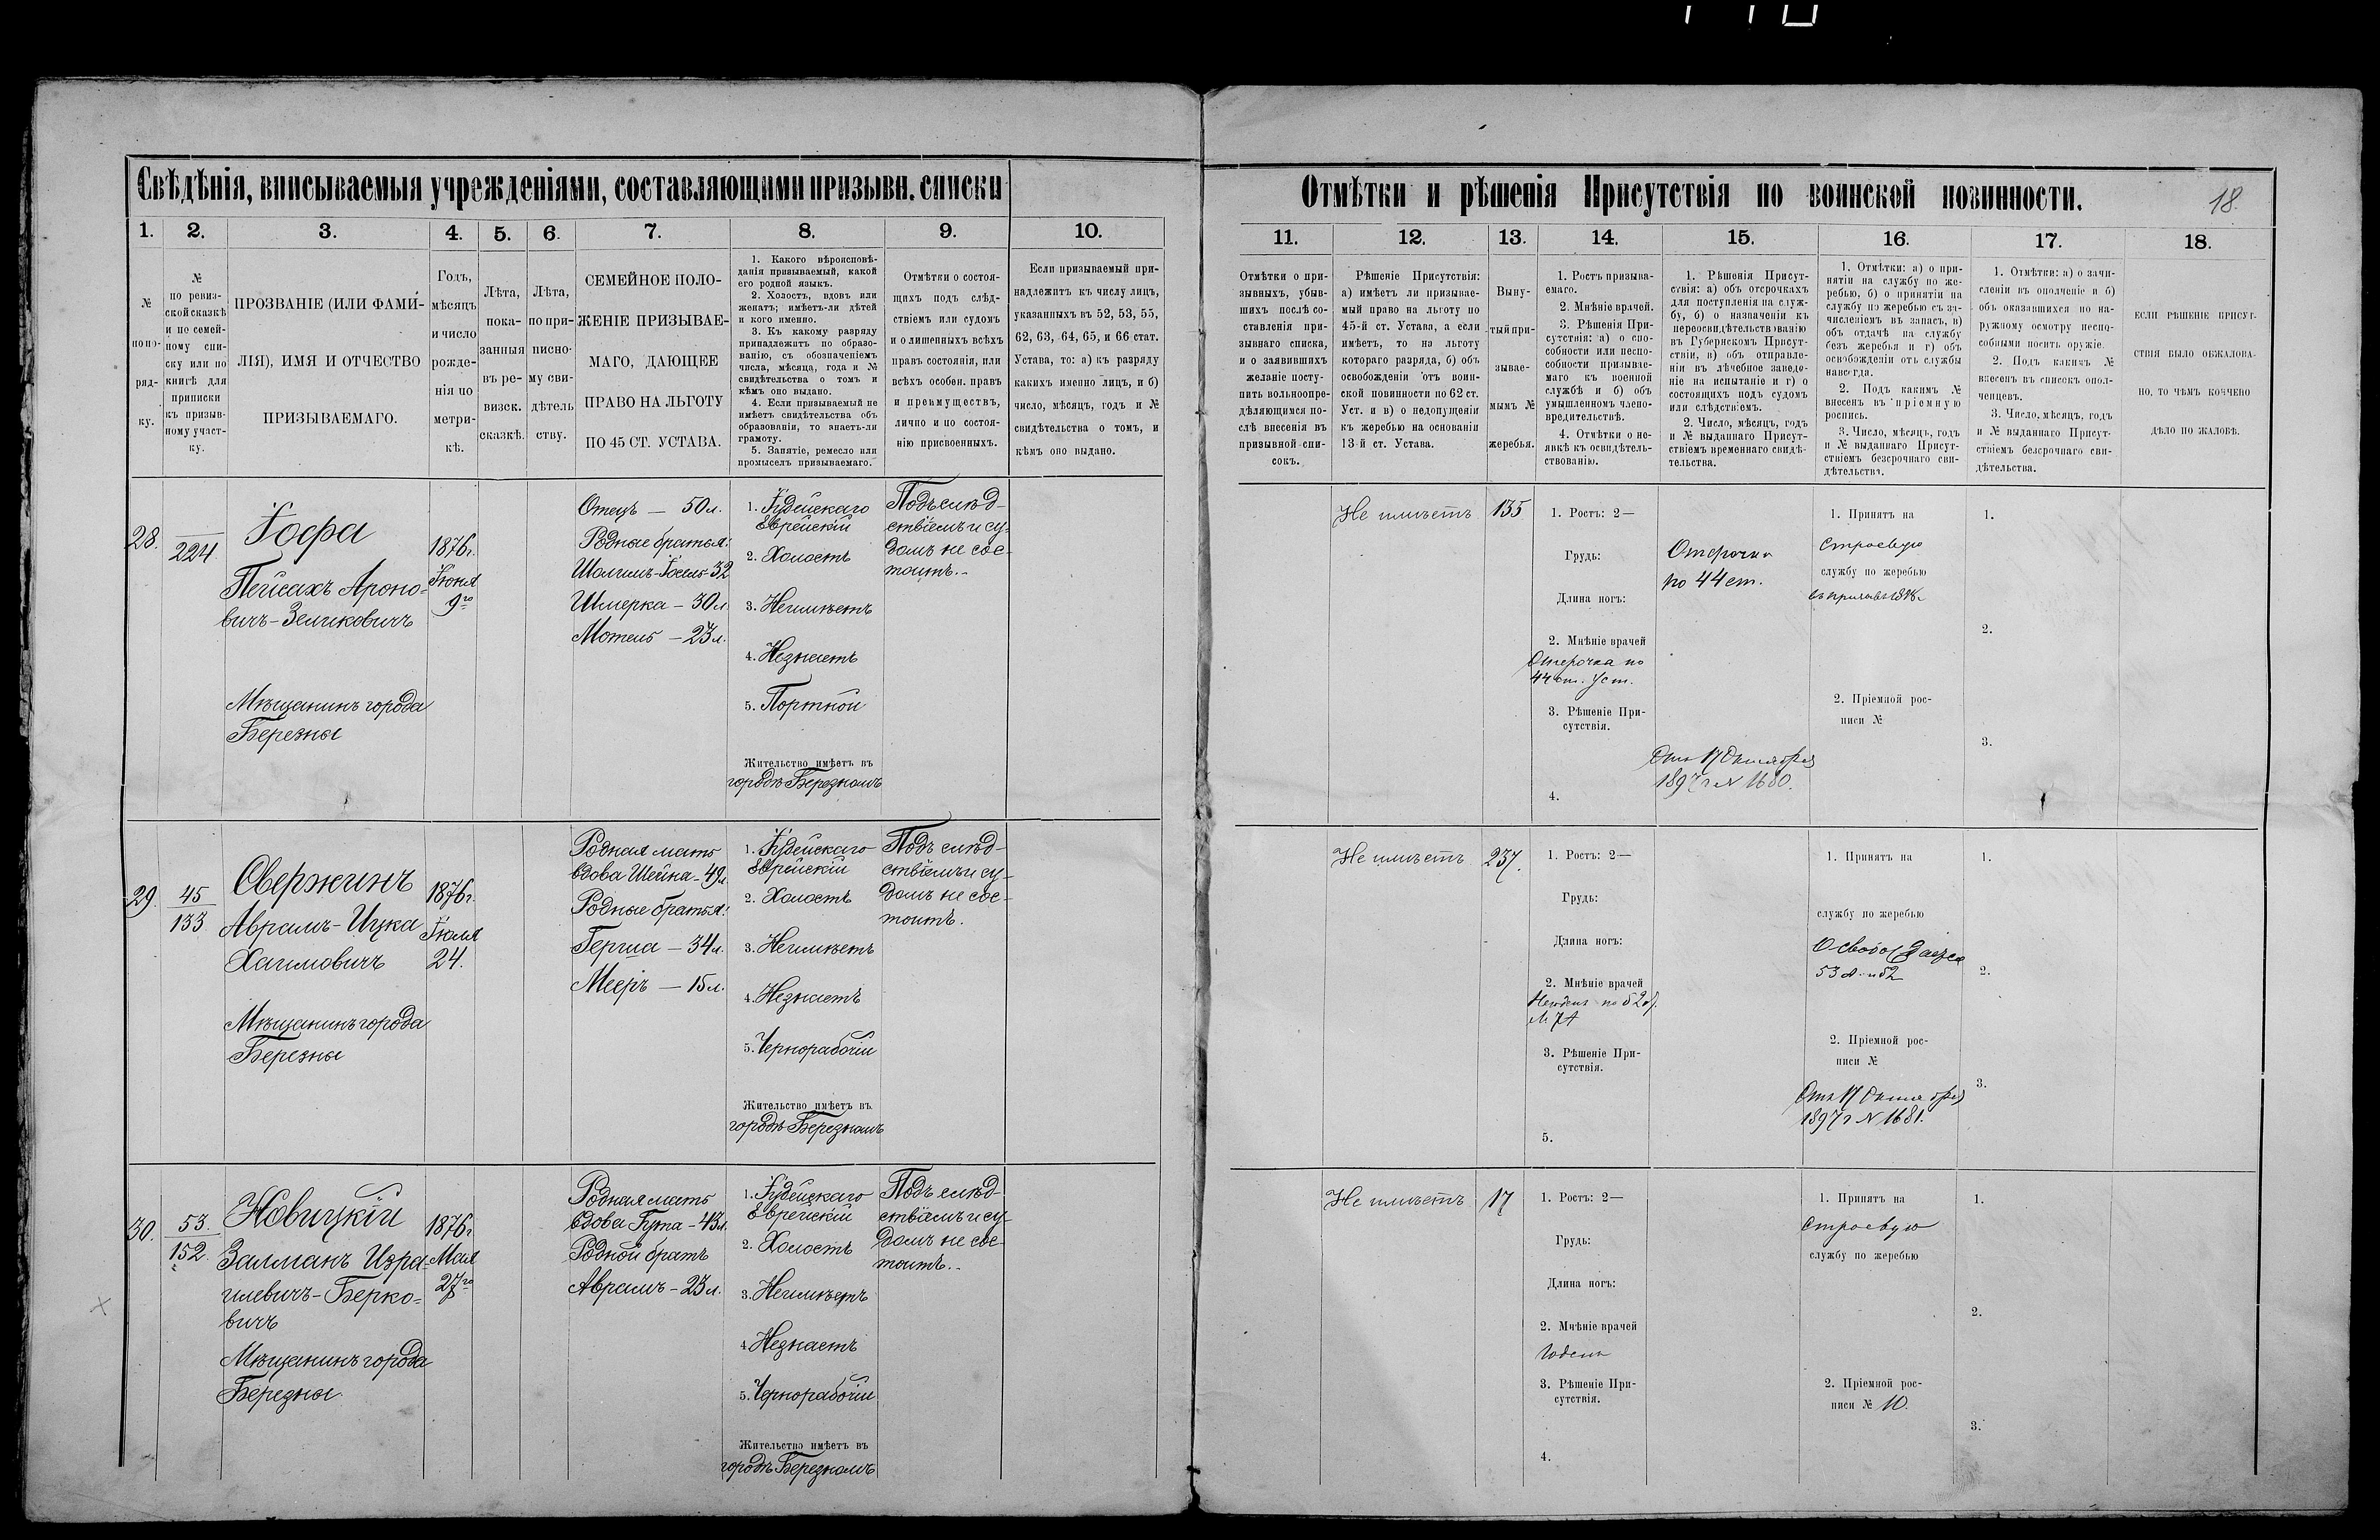 Свѣдѣнія, вписываемыя учрежденіями, составляющими призывн. списки
1.
2.
3.
4.
5.
6.
7.
8.
9.
10.
№
по по-
ряд-
ку.
№
по ревиз-
ской сказкѣ
и по семей-
ному спи-
ску или по
книгѣ для
приписки
къ призыв-
ному участ-
ку.
ПРОЗВАНІЕ (ИЛИ ФАМИ-
ЛІЯ), ИМЯ И ОТЧЕСТВО
ПРИЗЫВАЕМАГО.
Годъ,
мѣсяцъ
и число
рожде-
нія по
метри-
кѣ.
Лѣта,
пока-
занныя
въ ре-
визск.
сказкѣ.
Лѣта,
по при-
писно-
му сви-
дѣтель
ству.
СЕМЕЙНОЕ ПОЛО-
ЖЕНІЕ ПРИЗЫВАЕ-
МАГО, ДАЮЩЕЕ
ПРАВО НА ЛЬГОТУ
ПО 45 СТ. УСТАВА.
1. Какого вѣроисповѣ-
данія призываемый, какой
его родной языкъ.
2. Холостъ, вдовъ или
женатъ; имѣетъ-ли дѣтей
и кого именно.
3. Къ какому разряду
принадлежитъ по образо-
ванію, съ обозначеніемъ
числа, мѣсяца, года и №
свидѣтельства о томъ и
кѣмъ оно выдано.
4. Если призываемый не
имѣетъ свидѣтельства объ
образованіи, то знаетъ-ли
грамоту.
5. Занятіе, ремесло или
промыселъ призываемаго.
Отмѣтки о состоя-
щихъ подъ слѣд-
ствіемъ или судомъ
и о лишенныхъ всѣхъ
правъ состоянія, или
всѣхъ особен. правъ
и преимуществъ,
лично и по состоя-
нію присвоенныхъ.
Если призываемый при-
надлежитъ къ числу лицъ,
указанныхъ въ 52, 53, 55,
62, 63, 64, 65, и 66 стат.
Устава, то: а) къ разряду
какихъ именно лицъ, и б)
число, мѣсяцъ, годъ и №
свидѣтельства о томъ, и
кѣмъ оно выдано.
28.
224
Іофа
Пейсахъ Ароно-
вичъ-Зеликовичъ
Мѣщанинъ города
Березны
1876г.
Іюня
9го
Отецъ — 50 л.
Родные братья:
Шоломъ-Іосель 32
Шмерка — 30 л
Мотель — 23 л.
1. Іудейскаго
Еврейскій
2. Холостъ
3. Неимѣетъ
4. Незнаетъ
5. Портной
Жительство имѣетъ въ
городѣ Березномъ
Подъ слѣд-
ствіемъ и су-
домъ не сос-
тоитъ.
29.
45
133
Свержинъ
Аврамъ-Ицка
Хаимовичъ
Мѣщанинъ города
Березны
1876г.
Іюля
24.
Родная мать
вдова Шейна - 49 л
Родные братья:
Герша — 34 л.
Мееръ — 15 л.
1. Іудейскаго
Еврейскій
2. Холостъ
3. Неимѣетъ
4. Незнаетъ
5. Чернорабочій
Жительство имѣетъ въ
городѣ Березномъ
Подъ слѣд-
ствіемъ и су-
домъ не сос-
тоитъ.
30.
53.
152.
Новицкій
Залманъ Изра-
илевичъ-Берко-
вичъ
Мѣщанинъ города
Березны
1876г
Мая
27го
Родная мать
вдова Гута - 43 л.
Родной братъ
Аврамъ - 23 л.
1. Іудейскаго
Еврейскій
2. Холостъ
3. Неимѣетъ
4. Незнаетъ
5. Чернорабочій
Жительство имѣетъ въ
городѣ Березномъ
Подъ слѣд-
ствіемъ и су-
домъ не сос-
тоитъ.
Отмѣтки и рѣшенія Присутствія по воинской повинности.
18.
11.
12.
13.
14.
15.
16.
17.
18.
Отмѣтки о при-
зывныхъ, убыв-
шихъ послѣ со-
ставленія при-
зывнаго списка,
и о заявившихъ
желаніе посту-
пить вольноопре-
дѣляющимся по-
слѣ внесенія въ
призывной спи-
сокъ.
Рѣшеніе Присутствія:
а) имѣетъ ли призывае-
мый право на льготу по
45-й ст. Устава, а если
имѣетъ, то на льготу
котораго разряда, б) объ
освобожденіи отъ воин-
ской повинности по 62 ст.
Уст. и в) о недопущеніи
къ жеребью на основаніи
13-й ст. Устава.
Выну-
тый при-
зывае-
мымъ №
жеребья.
1. Ростъ призыва-
емаго.
2. Мнѣніе врачей.
3. Рѣшенія При-
сутствія: а) о спо-
собности или неспо-
собности призывае-
маго къ военной
службѣ и б) объ
умышленномъ члено-
вредительствѣ.
4. Отмѣтки о не-
явкѣ къ освидѣтель-
ствованію.
1. Рѣшенія Присут-
ствія: а) объ отсрочкахъ
для поступленія на служ-
бу, б) о назначеніи къ
переосвидѣтельствованію
въ Губернскомъ Присут-
ствіи, в) объ отправле-
ніи въ лѣчебное заведе-
ніе на испытаніе и г) о
состоящихъ подъ судомъ
или слѣдствіемъ.
2. Число, мѣсяцъ, годъ
и № выданнаго Присут-
ствіемъ временнаго свидѣ-
тельства.
1. Отмѣтки: а) о при-
нятіи на службу по же-
ребью, б) о принятіи на
службу по жеребью съ за-
численіемъ въ запасъ, в)
объ отдачѣ на службу
безъ жеребья и г) объ
освобожденіи отъ службы
навсегда.
2. Подъ какимъ №
внесенъ въ пріемную
роспись.
3. Число, мѣсяцъ, годъ
и № выданнаго Присут-
ствіемъ безсрочнаго сви-
дѣтельства.
1. Отмѣтки: а) о зачи-
сленіи въ ополченіе и б)
объ оказавшихся по на-
ружному осмотру неспо-
собными носить оружіе.
2. Подъ какимъ №
внесенъ въ списокъ опол-
ченцевъ.
3. Число, мѣсяцъ, годъ
и № выданнаго Присут-
ствіемъ безсрочнаго сви-
дѣтельства.
ЕСЛИ РѢШЕНІЕ ПРИСУТ-
СТВІЯ БЫЛО ОБЖАЛОВА-
НО, ТО ЧѢМЪ КОНЧЕНО
ДѢЛО ПО ЖАЛОБѢ.
Не имѣетъ
135
1. Ростъ: 2—
Грудь:
Длина ногъ:
2. Мнѣніе врачей
Отсрочка по
44 ст. Уст.
3. Рѣшеніе При-
сутствія.
4.
Отсрочки
по 44 ст.
Отъ 17 Октября
1897 г № 1680.
1. Принятъ на
Строевую
службу по жеребью
2. Пріемной рос-
писи №
1.
2.
3.
Не имѣетъ
237.
1. Ростъ: 2—
Грудь:
Длина ногъ:
2. Мнѣніе врачей
3. Рѣшеніе При-
сутствія.
5.
1. Принятъ на
службу по жеребью
Освобождается
2. Пріемной рос-
писи №
Отъ 17 Октября
1897 г № 1681.
1.
2.
3.
Не имѣетъ
17
1. Ростъ: 2—
Грудь:
Длина ногъ:
2. Мнѣніе врачей
Годенъ
3. Рѣшеніе При-
сутствія.
4.
1. Принятъ на
Строевую
службу по жеребью
2. Пріемной рос-
писи № 10.
1.
2.
3.